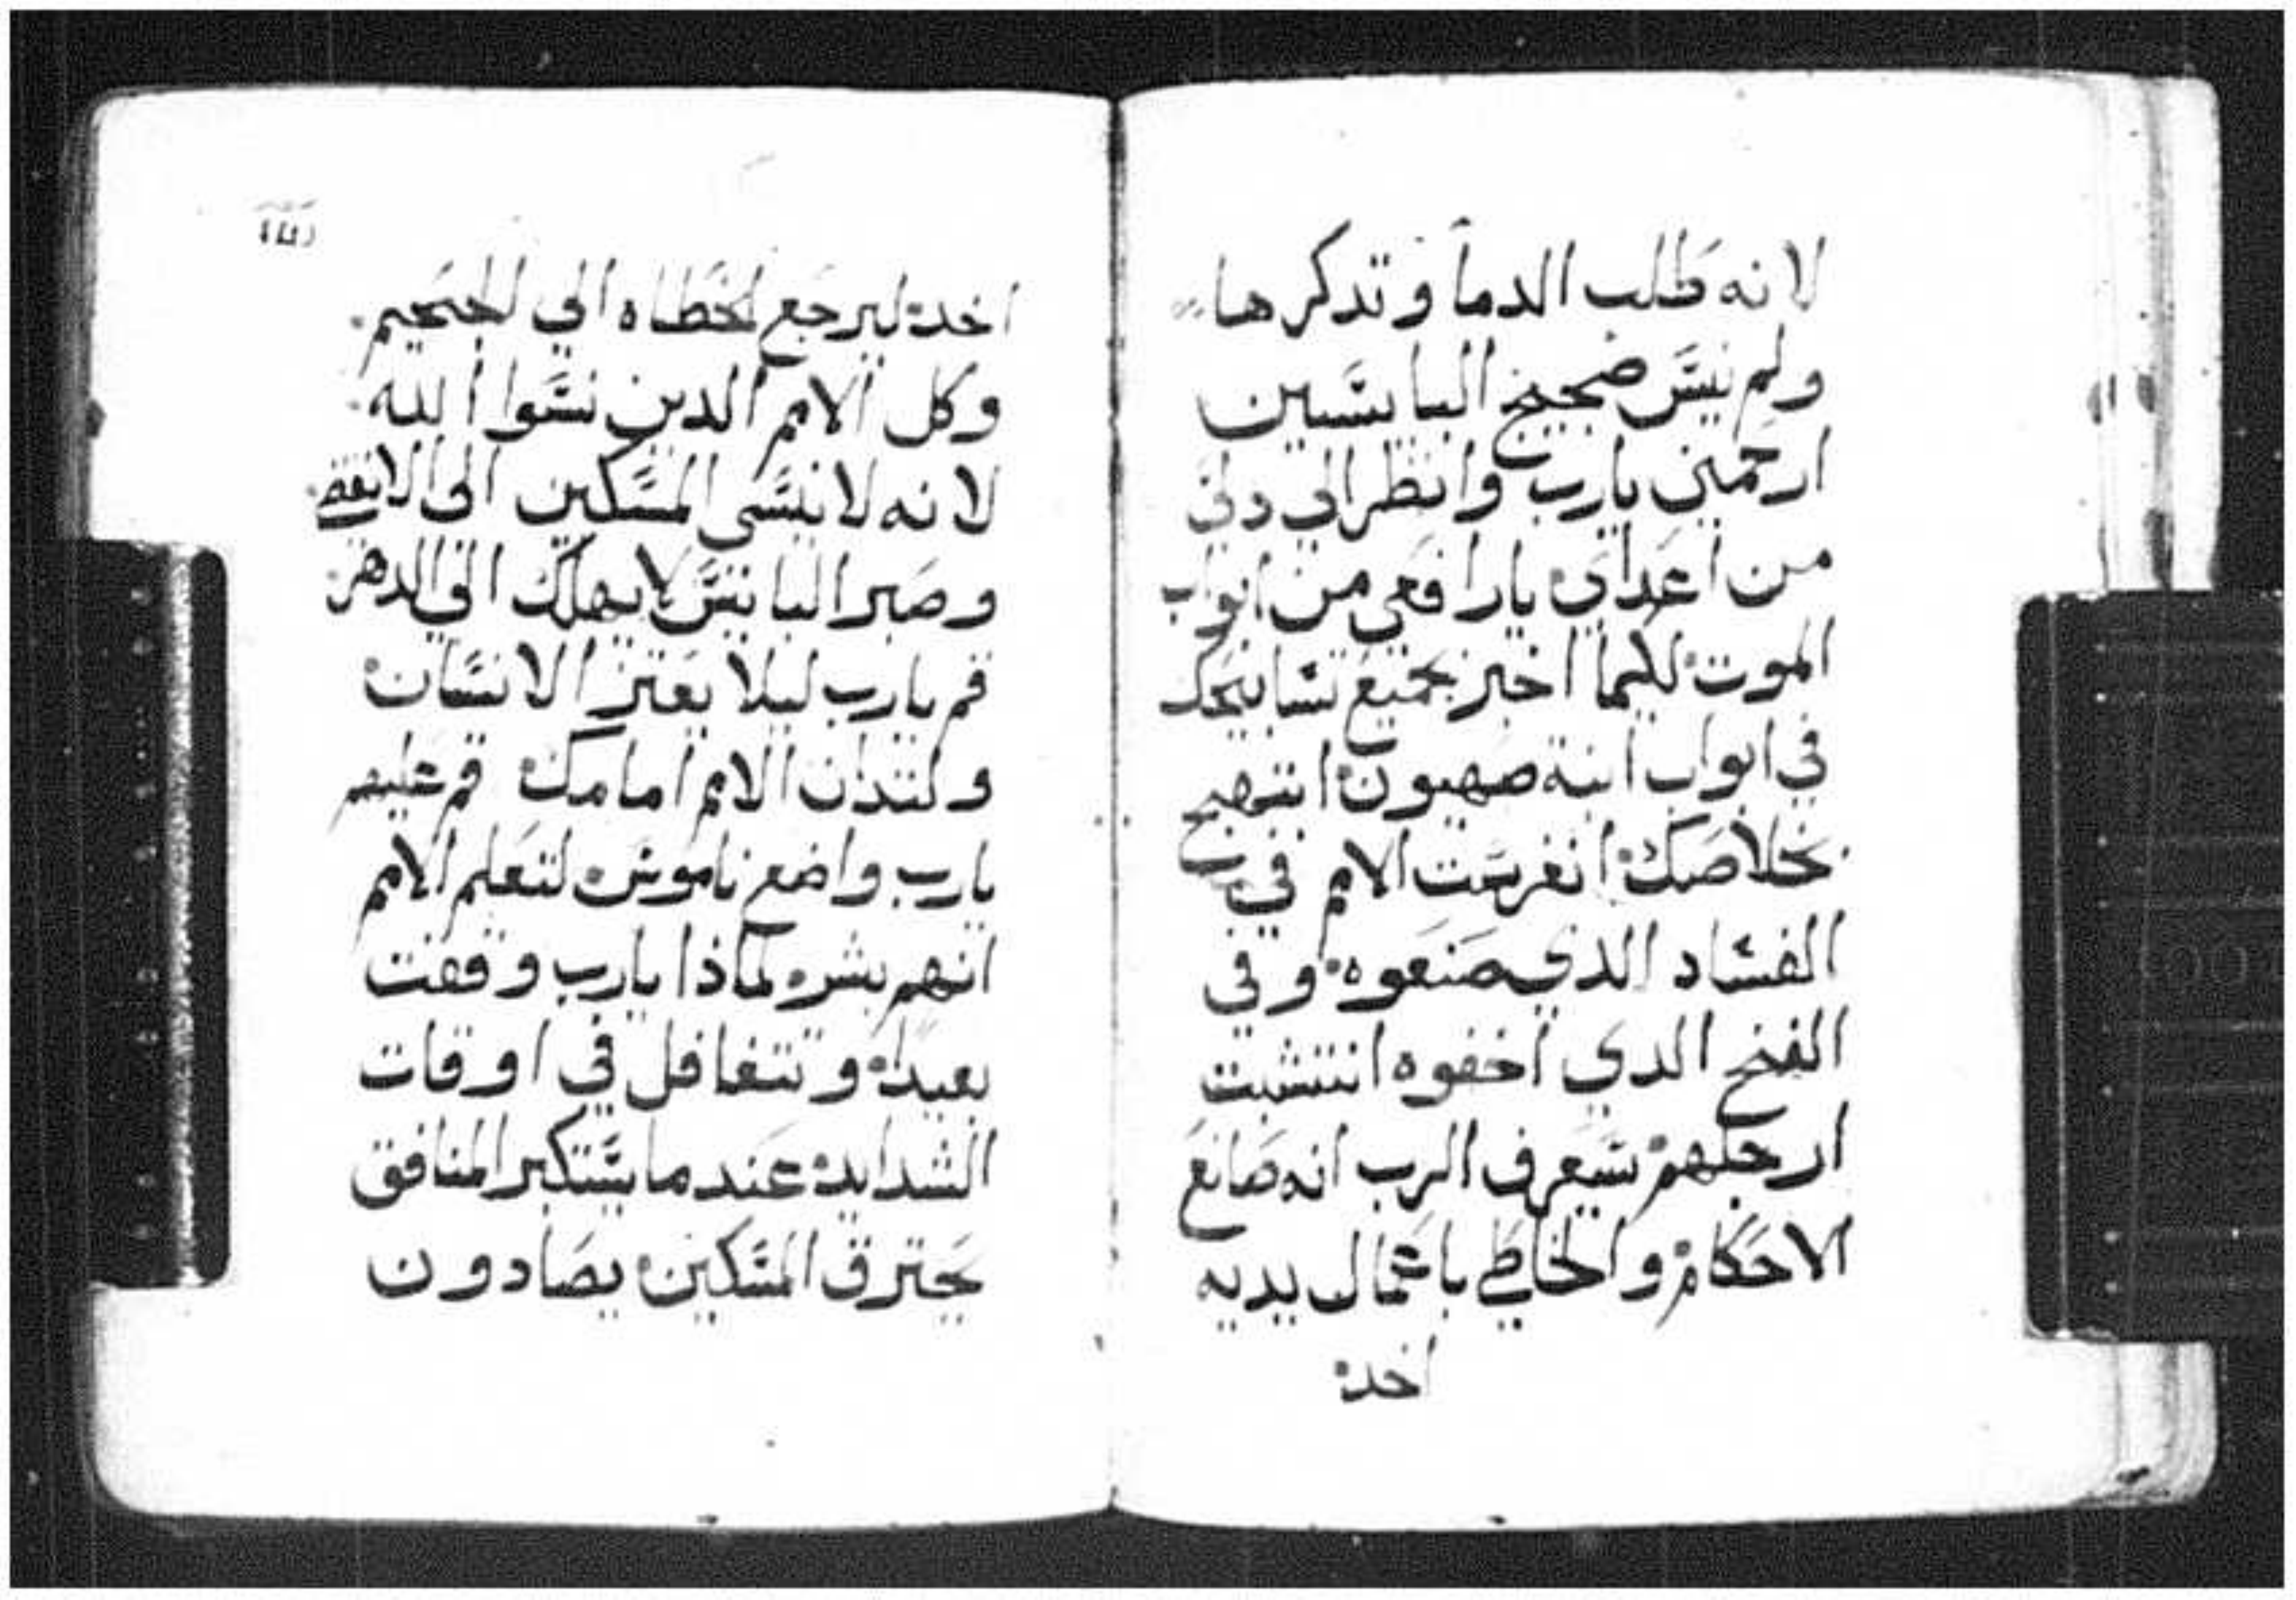 لانه طلب الدما وتدكرها
ولم ينس ضجيج البايسين
ارحمني يارب وانظر الي دلي
من اعداي يارافعي من ابواب
الموت لكيما اخبر بجميع تسابيحك
في ابواب ابنة صهيون ابتهج
بخلاصك انغرست الامم في
الفساد الذي صنعوه وفي
الفخ الدي اخفوه انتشبت
ارجلهم سيعرف الرب انه صانع
الاحكام والخاطي باعمال يديه
اخد
اخد ليرجع الخطاه الي الجحيم
وكل الامم الدين نسوا الله
لانه لا ينسي المسكين الي الانقضا
وصبر البايس لا يهلك الي الدهر
قم يارب ليلا يعتز الانسان
ولتدان الامم امامك قم عليهم
يارب واضع ناموس لتعلم الامم
انهم بشر لماذا يارب وقفت
بعيدا وتتغافل في اوقات
الشدايد عندما يستكبر المنافق
يحترق المسكين يصادون